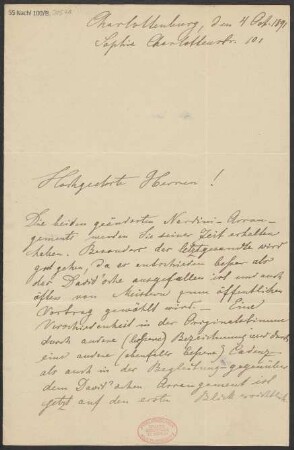 55 Nachl 100/B,
Charlottenburg, den 4 Oct. 1891
Sophie Charlottenstr. 101
Hochgeehrte Herren!
Die beiden geänderten Nardini-Arran-
gements werden Sie seiner Zeit erhalten
haben. Besonders der letztgesandte wird
gut gehen, da er entschieden besser als
der David'sche ausgefallen ist und auch
öfters von Meistern zum öffentlichen
Vortrag gewählt wird. – Eine
Verschiedenheit in der Originalstimme
durch andere (bessere) Bezeichnung und durch
eine andere (ebenfalls bessere) Cadenz
als auch in der Begleitung gegenüber
dem David'schen Arrangement ist
jetzt auf den ersten Blick ersichtlich